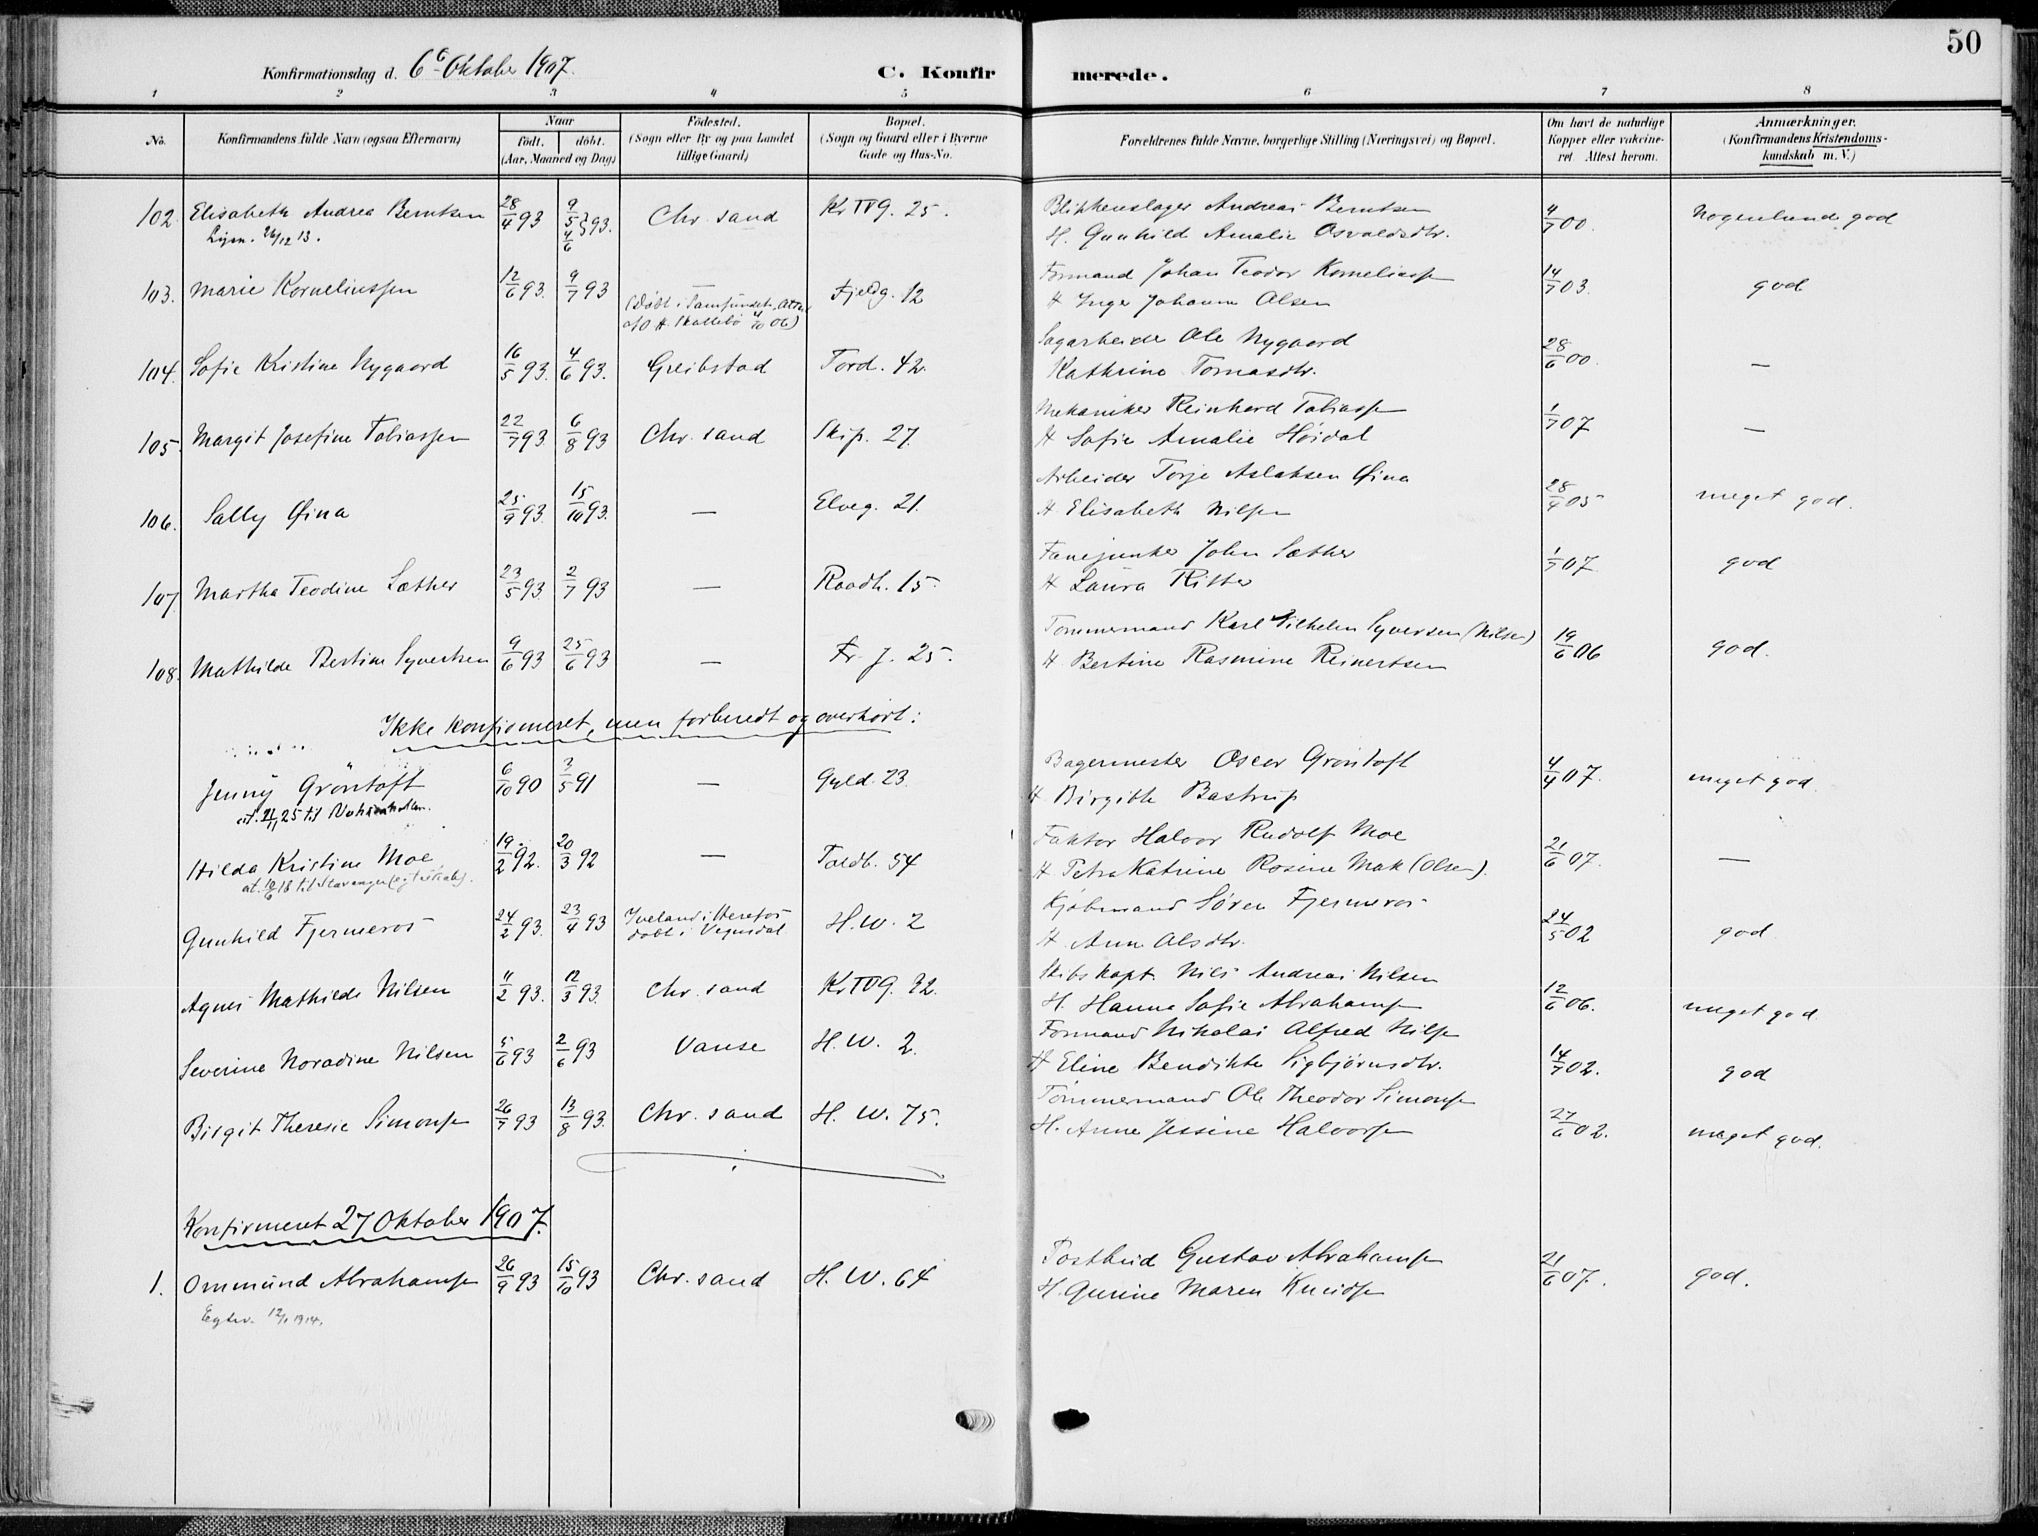 50
Konfirmationsdag d. 6te Oktober 1907.
C. Konfirmerede.
1 2 3 4 5 6 7 8
No. Konfirmandens fulde Navn (ogsaa Efternavn) Naar født. døbt. (Aar, Maaned og Dag) Fødested. (Sogn eller By og paa Landet tillige Gaard) Bopæl. (Sogn og Gaard eller i Byerne Gade og Hus-No. Forældrenes fulde Navne, borgerlige Stilling (Næringsvei) og Bopæl. Om havt de naturlige Kopper eller vakcineret. Attest herom. Anmærkninger. (Konfirmandens Kristendomskundskab m. V.)
102. Elisabeth Andrea Berntsen 28/4 93 9/5 4/6 93. Chr. sand Kr IV G. 25. Blikkenslager Andreas Berntsen 4/7 00. Nogenlunde god
26/12 13. H. Gunhild Amalie Osvaldsdtr.
103. Marie Korneliussen 12/6 93. 9/7 93 — Fjeldg. 12 Formand Johan Teodor Korneliussen 14/7 03. god
(Døbt i Samfundet, Attest af O H. Skattebö 4/10 06) H Inger Johanne Olsen
104. Sofie Kristine Nygaard 16/5 93. 4/6 93. Greibstad Tord. 42. Sagarbeider Ole Nygaard 28/6 00. —
Kathrine Tomasdtr.
105. Margit Josefine Tobiassen 22/7 93. 6/8 93 Chr. sand Skip. 27. Mekaniker Reinhard Tobiassen 1/7 07 —
H Sofie Amalie Høidal
106. Sally Øina 25/9 93. 15/10 93. — Elveg. 21. Arbeider Torje Aslaksen Øina 28/9 05 meget god.
H Elisabeth Nilsen
107. Martha Teodine Sæther 23/5 93. 2/7 93 — Raadh. 15. Fanejunker John Sæther 1/7 07 god
H Laura Ritter
108. Mathilde Bertine Syvertsen 9/6 93 25/6 93 — Fr. J. 25. Tømmermand Karl Vilhelm Syversen (Nilsen) 19/6 06 god.
H Bertine Rasmine Reinertsen
Ikke konfirmeret, men forberedt og overhørt:
Jenny Gröntoft 6/10 90 3/5 91 — Gyld. 23. Bagermester Oscar Grøntoft 4/4 07. meget god.
H Birgithe Bastrup
Hilda Kristine Moe 19/2 92. 20/3 92 — Toldb. 54 Faktor Halvor Rudolf Moe 21/6 07. —
H Petra Katrine Rosine Mak (Olsen).
Gunhild Fjermeros 24/2 93. 23/4 93 Iveland i Herefos H. W. 2 Kjøbmand Søren Fjermeros 24/5 02 god
døbt i Vegusdal H. Ann Olsdtr.
Agnes Mathilde Nilsen 11/2 93. 12/3 93. Chr. sand Kr IV G. 32. Skibskapt. Nils Andreas Nilsen 12/6 06. meget god
H. Hanna Sofie Abrahamsen
Severine Noradine Nilsen 5/6 93 2/6 93 Vanse H. W. 2. Formand Nikolai Alfred Nilsen 14/7 02. god
H Eline Bendikte Sigbjørnsdtr.
Birgit Therese Simonsen 26/7 93 13/8 93. Chr. sand H. W. 75. Tømmermand Ole Theodor Simonsen 27/6 02. meget god.
H. Anne Jessine Halvorsen
Konfirmeret 27 Oktober 1907.
1. Ommund Abrahamsen 26/9 93 15/10 93 Chr. sand H. W. 64 Postbud Gustav Abrahamsen 21/6 07. god.
Egtev. 12/1 1914. H. Gurine Maren Knudsen